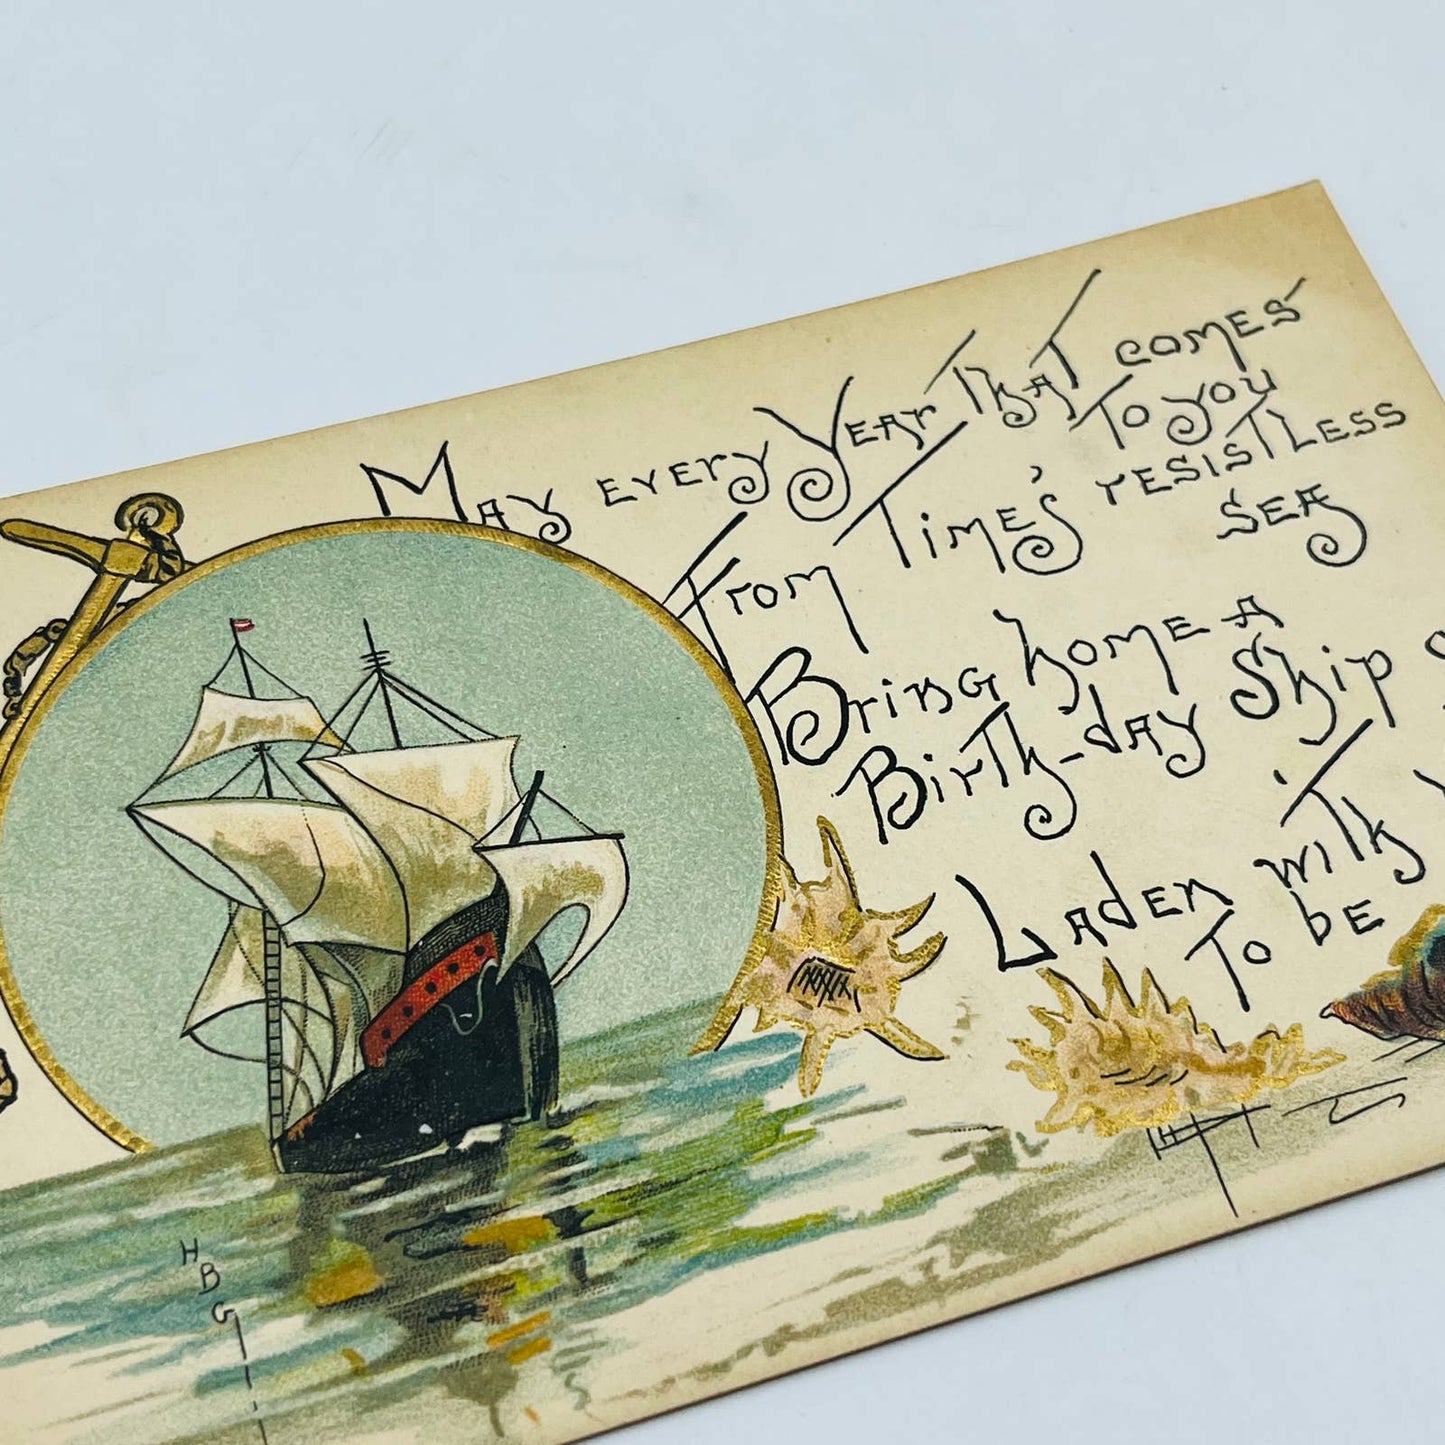 May every Year That comes
To you
From Time's resistless
sea
Bring home a
Birth-day Ship
Laden with
To be
HBG